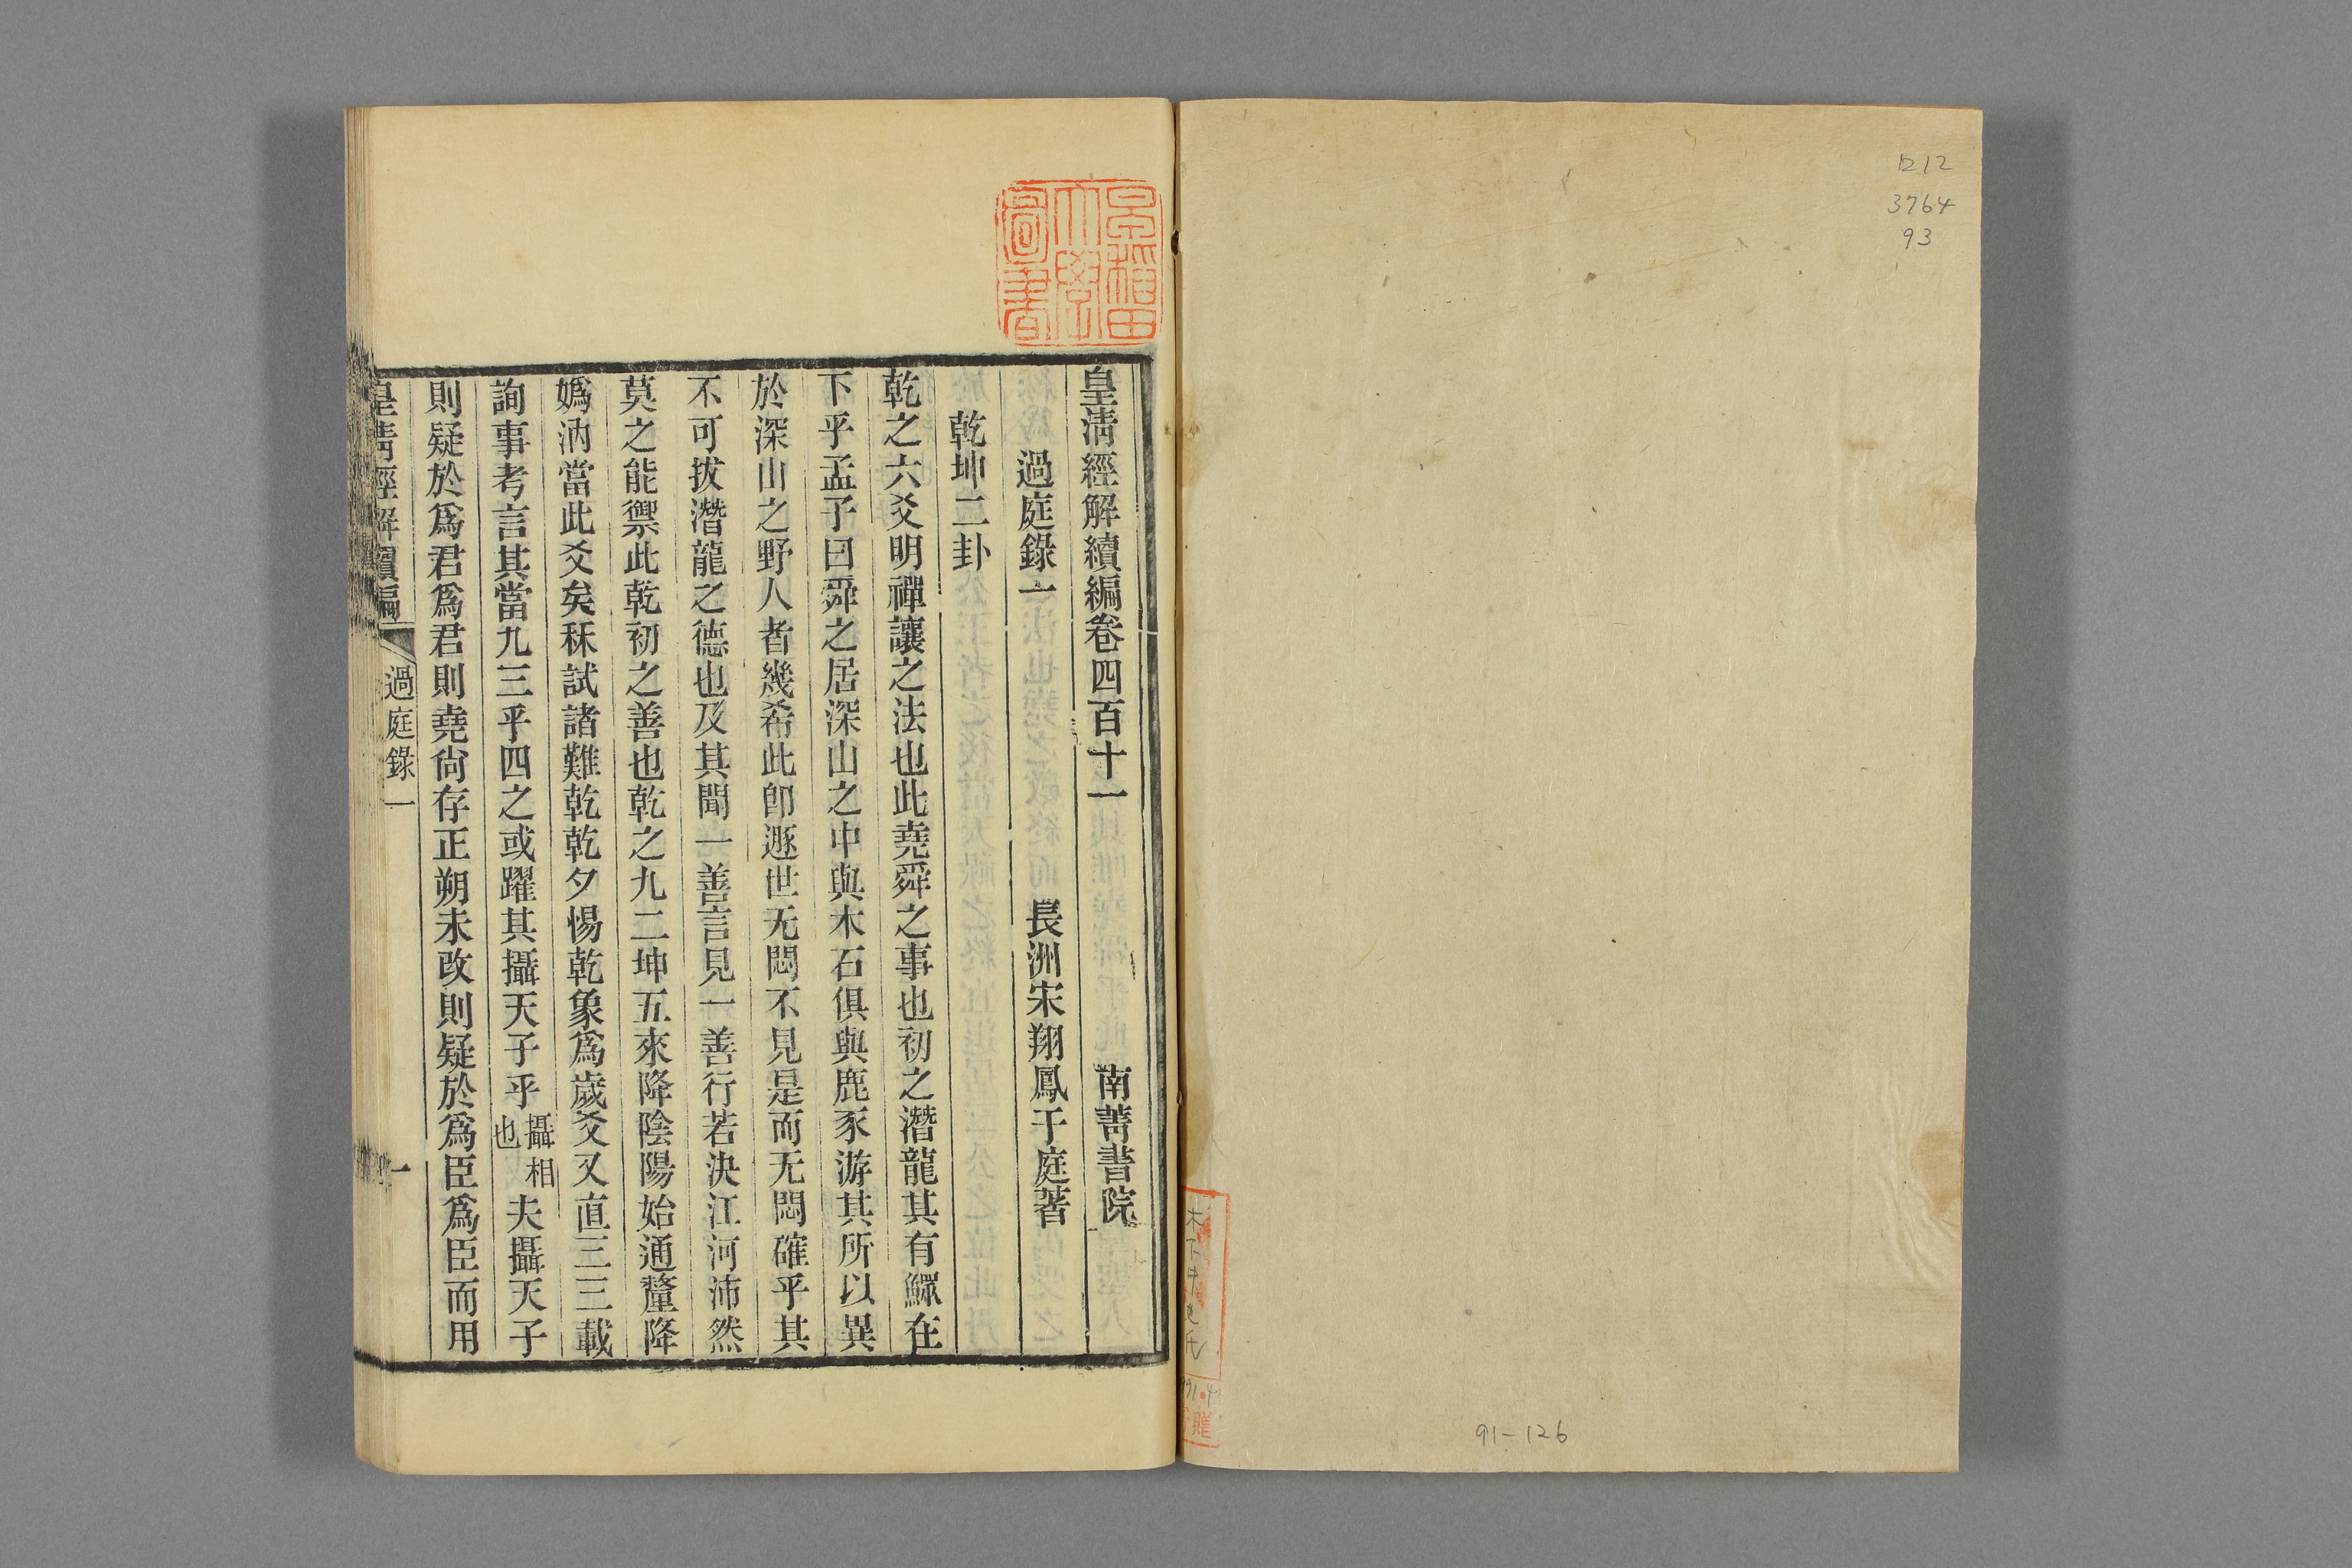 ロ12
3764
93
91-126
早稲田大學圖書
皇清經解續編卷四百十一
南菁書院
過庭錄一
長洲宋翔鳳于庭著
乾坤二卦
乾之六爻明禪讓之法也此堯舜之事也初之潛龍其有鰥在
下乎孟子曰舜之居深山之中與木石俱與鹿豕游其所以異
於深山之野人者幾希此卽遯世无悶不見是而无悶確乎其
不可拔潛龍之德也及其聞一善言見一善行若決江河沛然
莫之能禦此乾初之善也乾之九二坤五來降陰陽始通釐降
嬀汭當此爻矣秝試諸難乾乾夕惕乾象爲歲爻又直三三載
詢事考言其當九三乎四之或躍其攝天子乎攝相也夫攝天子
則疑於爲君爲君則堯尙存正朔未改則疑於爲臣爲臣而用
皇清經解續編
過庭錄一
一